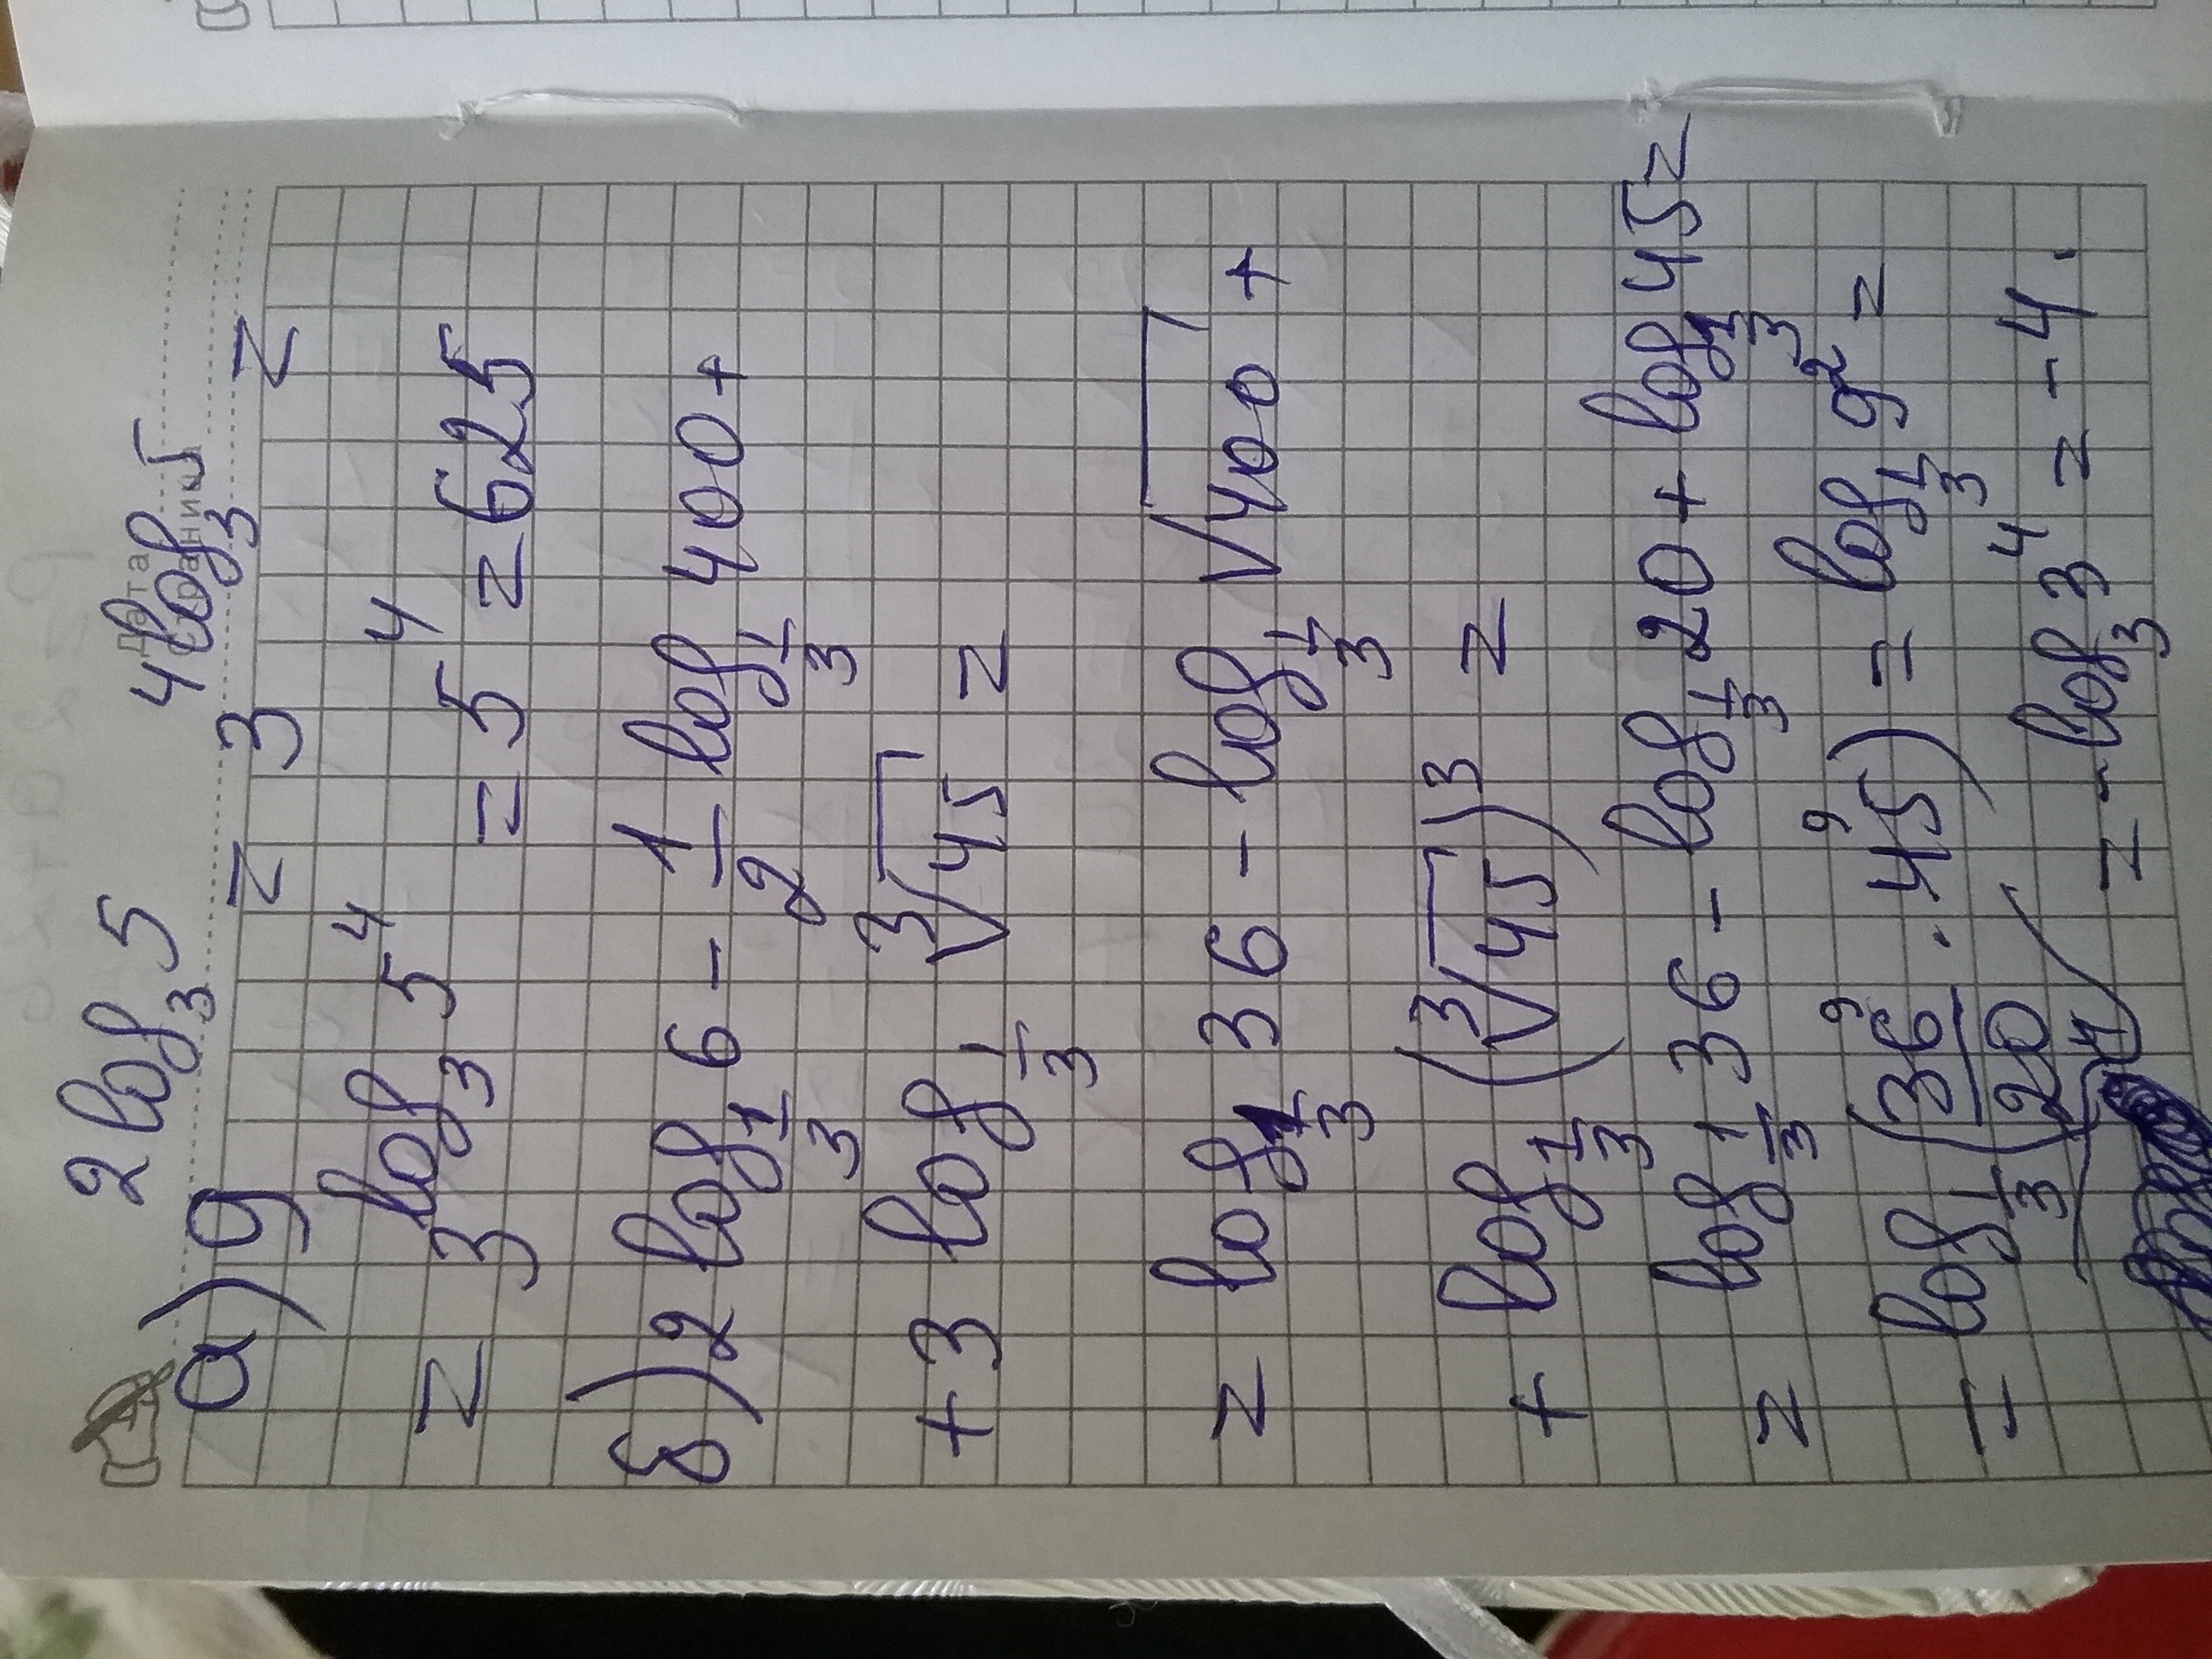 Дата
а) 9^{2 log_3 5} = 3^{4 log_3 5} =
= 3^{log_3 5^4} = 5^4 = 625
б) 2 log_{1/3} 6 - 1/2 log_{1/3} 400 +
+ 3 log_{1/3} ∛45 =
= log_{1/3} 36 - log_{1/3} √400 +
+ log_{1/3} (∛45)^3 =
= log_{1/3} 36 - log_{1/3} 20 + log_{1/3} 45 =
= log_{1/3} (36/20 · 45) = log_{1/3} 9^2 =
= - log_3 3^4 = - 4.